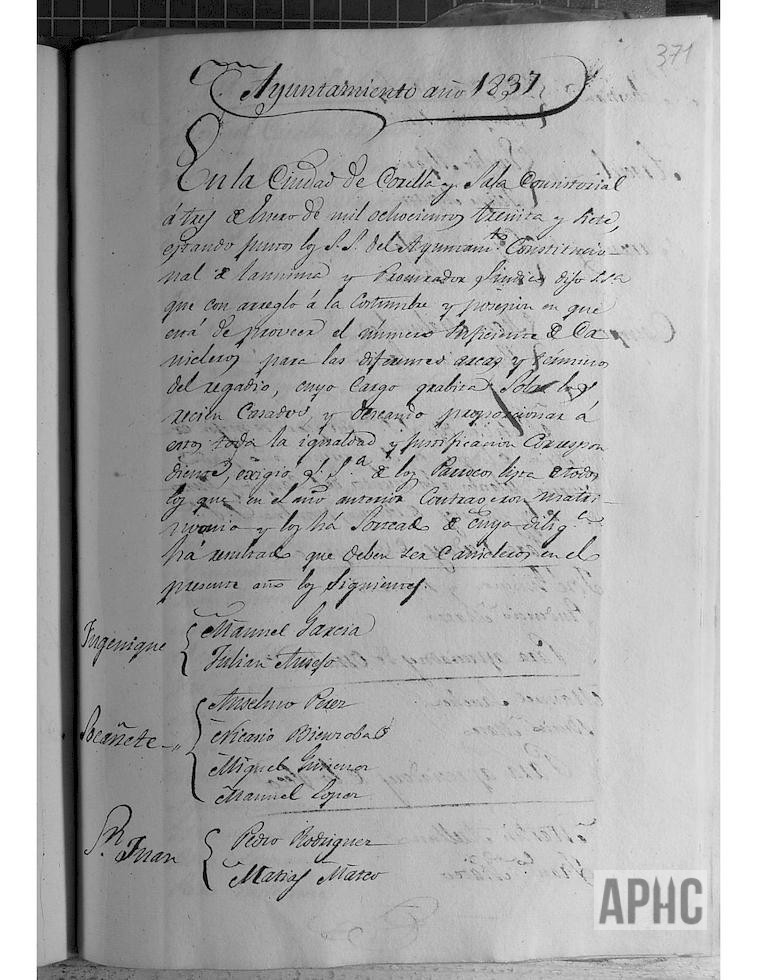 371
Ayuntamiento año 1837
En la Ciudad de Corella y Sala Consistorial
á tres de Enero de mil ochocientos treinta y siete,
estando juntos los S.S. del Ayuntam.to Constitucio-
nal de la misma y Procurador Síndico dijo S.S.a
que con arreglo á la Costumbre y posesion en que
está de proveer el número suficiente de Ca
ñicleros para las diferentes arcas y terminos
del regadio, cuyo cargo gravita sobre los
recien Casados, y deseando proporcionar á
estos toda la igualdad y justificacion Correspon
diente, exigió S.S.a de los Parrocos lista de todos
los que en el año anterior Contrageron matri-
monio y los há Sorteado de cuya dilig.a
há resultado que deben ser Cañicleros en el
presente año los Siguientes.
Ingenique
Manuel Garcia
Julian Ausejo
Socañete
Anselmo Perez
Nicasio Bienzobas
Miguel Gimenez
Manuel Lopez
S.n Juan
Pedro Rodriguez
Matias Mateo
APHC